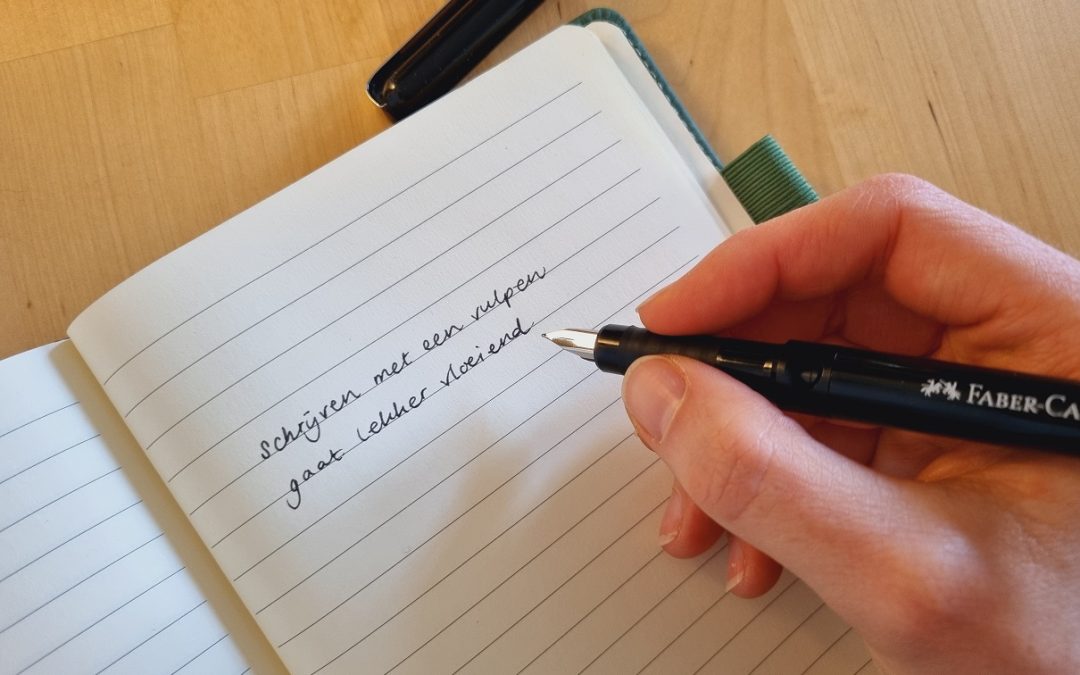 schrijven met een vulpen
gaat lekker vloeiend
FABER-CA